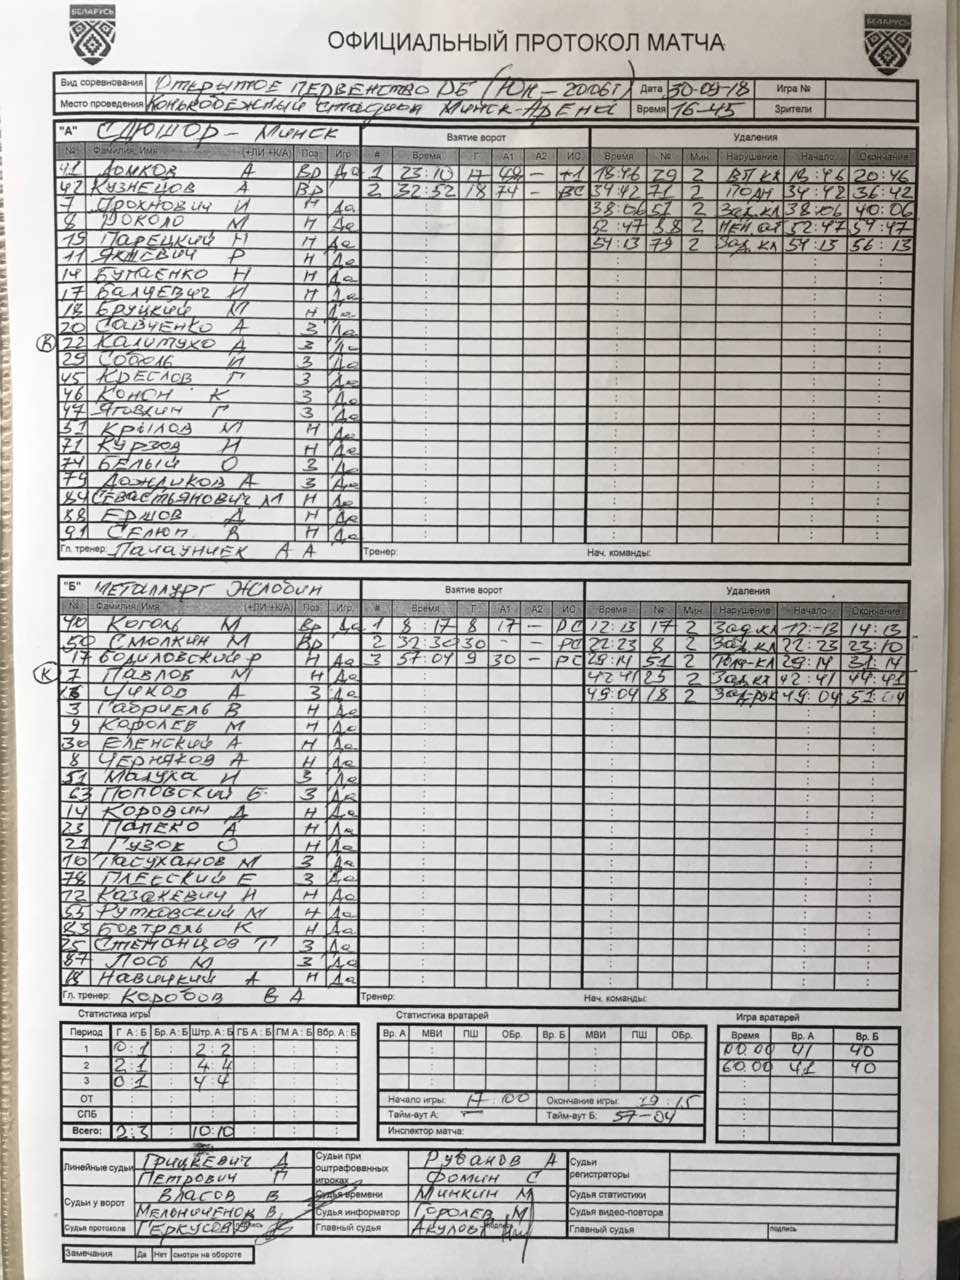 БЕЛАРУСЬ БЕЛАРУСЬ
ОФИЦИАЛЬНЫЙ ПРОТОКОЛ МАТЧА
Вид соревнования Открытое первенство РБ (Юн-2006г) Дата 30-09-18 Игра №
Место проведения Конькобежный стадион Минск-Арены Время 16-45 Зрители
"А" СДЮШОР - Минск Взятие ворот Удаления
№ Фамилия, Имя (+ЛИ +К/А) Поз Игр # Время Г А1 А2 ИС Время № Мин Нарушение Начало Окончание
41 Домков А Вр Да 1 23:10 17 - +1 18:46 29 2 18:46 20:46
42 Кузнецов А Вр 2 32:52 18 74 - БС 34:42 71 2 Подн 34:42 36:42
7 Прохнович И Н Да 38:06 51 2 Зад.кл 38:06 40:06
8 Моколо М Н Да 52:47 88 2 52:47 54:47
19 Парецкий Н Н Да 54:13 79 2 Зад.кл 54:13 56:13
11 Якшевич Р Н Да
14 Бутаенко Н Н Да
17 Балцевич И Н Да
18 Бруцкий М Н Да
20 Савченко А З Да
(К) 22 Калитухо А З Да
29 Соболь И З Да
45 Креслов Г З Да
46 Конон К З Да
47 Яговкин Г З Да
51 Крылов М Н Да
71 Курзов И Н Да
74 Белый О З Да
79 Дождиков А З Да
84 Севастьянович М Н Да
88 Ершов Д Н Да
91 Селюн В Н Да
Гл. тренер: Пачаунчек А А Тренер: Нач. команды:
"Б" Металлург Жлобин Взятие ворот Удаления
№ Фамилия, Имя (+ЛИ +К/А) Поз Игр. # Время Г А1 А2 ИС Время № Мин Нарушение Начало Окончание
40 Коголь М Вр Да 1 8:17 8 17 - РС 12:13 17 2 Зад.кл 12:13 14:13
50 Смолкин М Вр 2 32:30 30 - - РС 22:23 8 2 Зад.кл 22:23 23:10
17 Бодиловский Р Н Да 3 57:04 9 30 - РС 29:14 51 2 29:14 31:14
(К) 7 Павлов М Н Да 42:41 25 2 Зад.кл 42:41 44:41
Чиков А З Да 49:04 18 2 Зад.рук 49:04 51:04
3 Габриель В Н Да
9 Королев М Н Да
30 Еленский А Н Да
8 Черняков А Н Да
51 Малуха И З Да
63 Поповский Е З Да
14 Коровин Д Н Да
23 Папеко А Н Да
21 Гузок О Н Да
10 Тасуханов М З Да
78 Плевский Е З Да
72 Казакевич Н Н Да
55 Рутковский М Н Да
83 Бовтрель К Н Да
25 Степанцов Т З Да
87 Лось М З Да
18 Навицкий А Н Да
Гл. тренер: Коробов В А Тренер: Нач. команды:
Статистика игры Статистика вратарей Игра вратарей
Период Г А : Б Бр. А : Б Штр. А : Б ГБ А : Б ГМ А : Б Вбр. А : Б Вр. А МВИ ПШ ОБр. Вр. Б МВИ ПШ ОБр. Время Вр. А Вр. Б
1 0:1 2:2 00.00 41 40
2 2:1 4:4 60.00 41 40
3 0:1 4:4
ОТ Начало игры: 17:00 Окончание игры: 19:15
СПБ Тайм-аут А: - Тайм-аут Б: 57-04
Всего: 2:3 10:10 Инспектор матча:
Линейные судьи Грицкевич Д Судьи при оштрафованных игроках Рубанов А Судьи регистраторы
Петрович П Фомин С
Судьи у ворот Власов В Судья времени Минкин М Судья статистики
Мелониченок В. Судья информатор Горолев М Судья видео-повтора
Судья протокола Геркусов подпись Главный судья Акулов подпись Главный судья подпись
Замечания Да Нет смотри на обороте